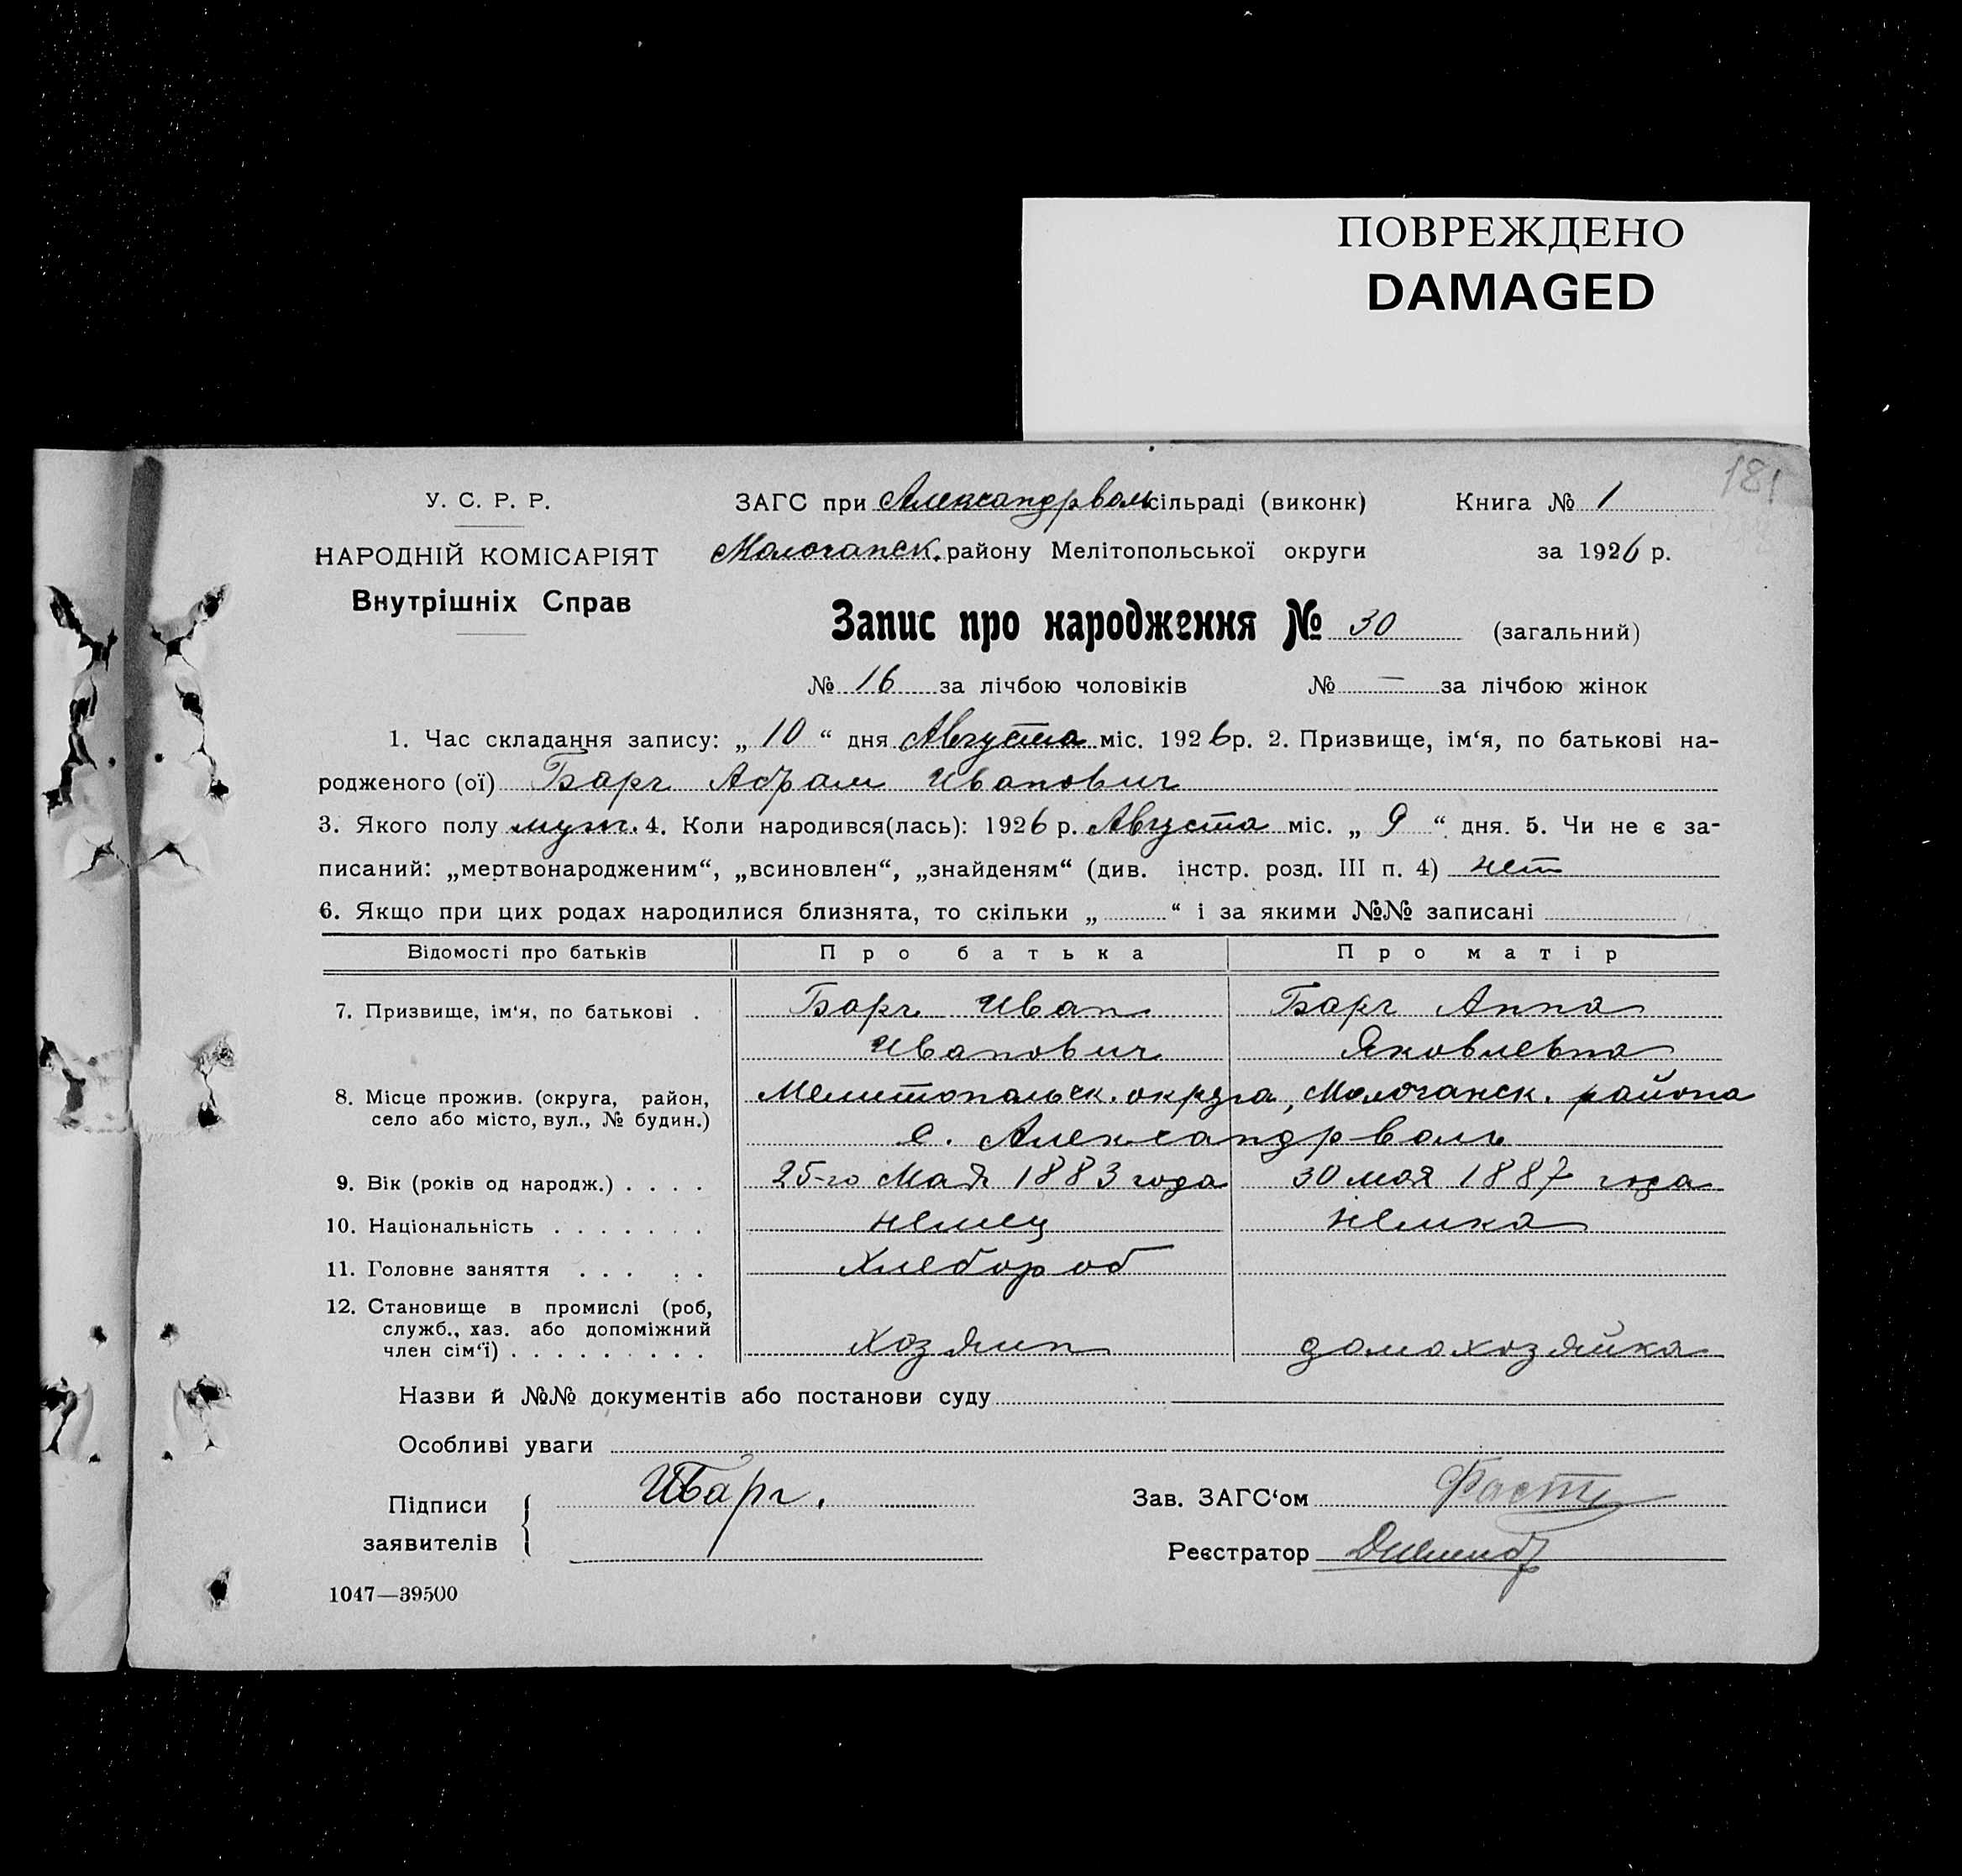 ПОВРЕЖДЕНО
DAMAGED
181
У. С. Р. Р.
ЗАГС при Александрволь сільраді (виконк) Книга № 1
НАРОДНІЙ КОМІСАРІЯТ
Молочанск. району Мелітопольської округи за 1926 р.
Внутрішніх Справ
Запис про народження № 30 (загальний)
№ 16 за лічбою чоловіків № — за лічбою жінок
1. Час складання запису: „ 10 “ дня Августа міс. 1926 р. 2. Призвище, ім‘я, по батькові на-
родженого (ої) Барг Абрам Иванович
3. Якого полу муж. 4. Коли народився(лась): 1926 р. Августа міс. „ 9 “ дня. 5. Чи не є за-
писаний: „мертвонародженим“, „всиновлен“, „знайденям“ (див. інстр. розд. III п. 4) нет
6. Якщо при цих родах народилися близнята, то скільки „ “ і за якими №№ записані
Відомості про батьків Про батька Про матір
7. Призвище, ім‘я, по батькові . Барг Иван Барг Анна
Иванович Яковлевна
8. Місце прожив. (округа, район, Мелитопольск. округа, Молочанск. района
село або місто, вул., № будин.) с. Александрволь
9. Вік (років од народж.) . . . . 25-го Мая 1883 года 30 мая 1887 года
10. Національність . . . . . . . немец немка
11. Головне заняття . . . . . Хлебороб
12. Становище в промислі (роб,
служб., хаз. або допоміжний
член сім‘ї) . . . . . . . . . Хозяин домохозяйка
Назви й №№ документів або постанови суду
Особливі уваги
Підписи заявителів { ИБарг.
Зав. ЗАГС‘ом Фаст
Реєстратор
1047—39500